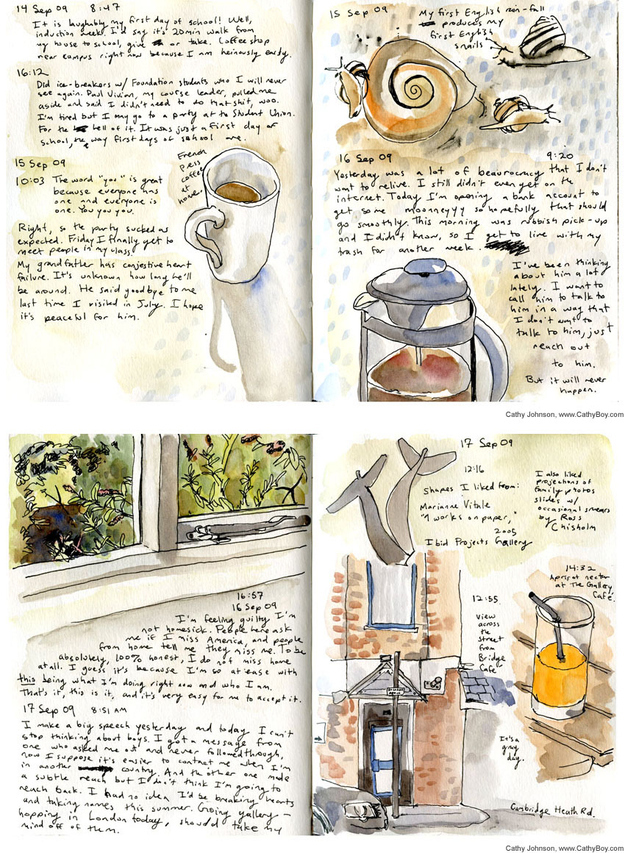 14 Sep 09 8:47
It is laughably my first day of school! Well,
induction week. I'd say it's 20min walk from
my house to school, give or take. Coffee shop
near campus right now because I am heinously early.
16:12
Did ice-breakers w/ Foundation students who I will never
see again. Paul Vivian, my course leader, pulled me
aside and said I didn't need to do that shit, woo.
I'm tired but I may go to a party at to Student Union.
For the hell of it. It was just a first day of
school, the way first days of school are.
15 Sep 09
10:03 The word "you" is great
because everyone has
one and everyone is
one. You you you.
French
press
coffee
at
home.
Right, so the party sucked as
expected. Friday I finally get to
meet people in my class.
My grandfather has congestive heart
failure. It's unknown how long he'll
be around. He said goodbye to me
last time I visited in July. I hope
it's peaceful for him.
15 Sep 09
My first English rain-fall
produces my
first English
snails
16 Sep 09 9:20
Yesterday was a lot of beaurocracy that I don't
want to relive. I still didn't even get on the
internet. Today I'm opening a bank account to
get some mooneyyy so hopefully that should
go smoothly. This morning was rubbish pick-up
and I didn't know, so I get to live with my
trash for another week.
I've been thinking
about him a lot
lately. I want to
call him to talk to
him in a way that
I don't want to
talk to him, just
reach out
to him.
But it will never
happen.
Cathy Johnson, www.CathyBoy.com
16:57
16 Sep 09
I'm feeling guilty I'm
not homesick. People here ask
me if I miss America, and people
from home tell me they miss me. To be
absolutely, 100% honest, I do not miss home
at all. I guess it's because I'm so at ease with
this being what I'm doing right now and who I am.
That's it, this is it, and it's very easy for me to accept it.
17 Sep 09 8:51 AM
I make a big speech yesterday and today I can't
stop thinking about boys. I got a message from
one who asked me out and never followed through,
now I suppose it's easier to contact me when I'm
in another country. And the other one made
a subtle reach but I don't think I'm going to
reach back. I had no idea I'd be breaking hearts
and taking names this summer. Going gallery-
hopping in London today, should take my
mind off of them.
17 Sep 09
12:16
Shapes I liked from:
Marianne Vitale
works on paper,"
2005
Ibid Projects Gallery
I also liked
projections of
family photos
slides w/
occasional smears
by Ross
Chisholm
14:32
Apricot nectar
at The Gallery
Café.
12:55
View
across
the
street
from
Bridge
Café
It's a
gray
day.
Cambridge Heath Rd.
Cathy Johnson, www.CathyBoy.com